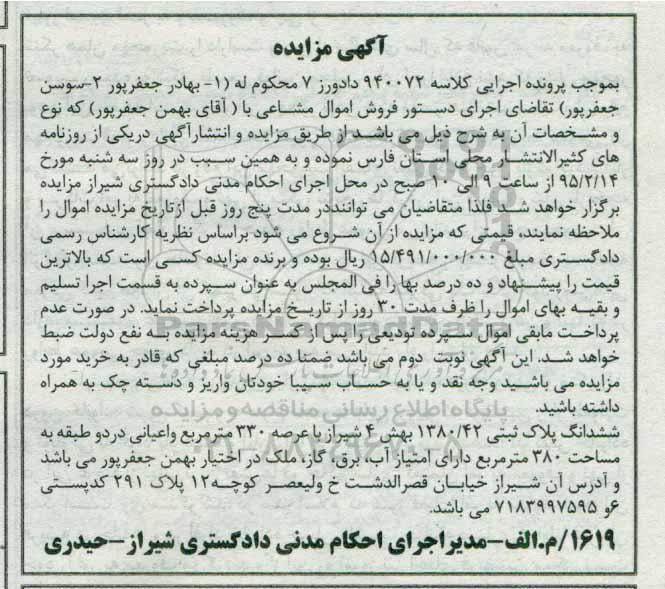 آگهی مزایده
بموجب پرونده اجرایی کلاسه ۹۴۰۰۷۲ دادورز ۷ محکوم له (۱- بهادر جعفرپور ۲-سوسن
جعفرپور) تقاضای اجرای دستور فروش اموال مشاعی با ( آقای بهمن جعفرپور) که نوع
و مشخصات آن به شرح ذیل می باشد از طریق مزایده و انتشارآگهی دریکی از روزنامه
های کثیرالانتشار محلی استان فارس نموده و به همین سبب در روز سه شنبه مورخ
۹۵/۲/۱۴ از ساعت ۹ الی ۱۰ صبح در محل اجرای احکام مدنی دادگستری شیراز مزایده
برگزار خواهد شد فلذا متقاضیان می تواننددر مدت پنج روز قبل ازتاریخ مزایده اموال را
ملاحظه نمایند، قیمتی که مزایده از آن شروع می شود براساس نظریه کارشناس رسمی
دادگستری مبلغ ۱۵/۴۹۱/۰۰۰/۰۰۰ ریال بوده و برنده مزایده کسی است که بالاترین
قیمت را پیشنهاد و ده درصد بها را فی المجلس به عنوان سپرده به قسمت اجرا تسلیم
و بقیه بهای اموال را ظرف مدت ۳۰ روز از تاریخ مزایده پرداخت نماید. در صورت عدم
پرداخت مابقی اموال سپرده تودیعی را پس از کسر هزینه مزایده به نفع دولت ضبط
خواهد شد. این آگهی نوبت دوم می باشد ضمنا ده درصد مبلغی که قادر به خرید مورد
مزایده می باشید وجه نقد و یا به حساب سیبا خودتان واریز و دسته چک به همراه
داشته باشید.
ششدانگ پلاک ثبتی ۱۳۸۰/۴۲ بهش ۴ شیراز با عرصه ۳۳۰ مترمربع واعیانی دردو طبقه به
مساحت ۳۸۰ مترمربع دارای امتیاز آب، برق، گاز، ملک در اختیار بهمن جعفرپور می باشد
و آدرس آن شیراز خیابان قصرالدشت خ ولیعصر کوچه۱۲ پلاک ۲۹۱ کدپستی
۷۱۸۳۹۹۷۵۹۵ و۶ می باشد.
۱۶۱۹/م.الف-مدیراجرای احکام مدنی دادگستری شیراز-حیدری
ParsNamadData
پایگاه اطلاع رسانی مناقصه و مزایده